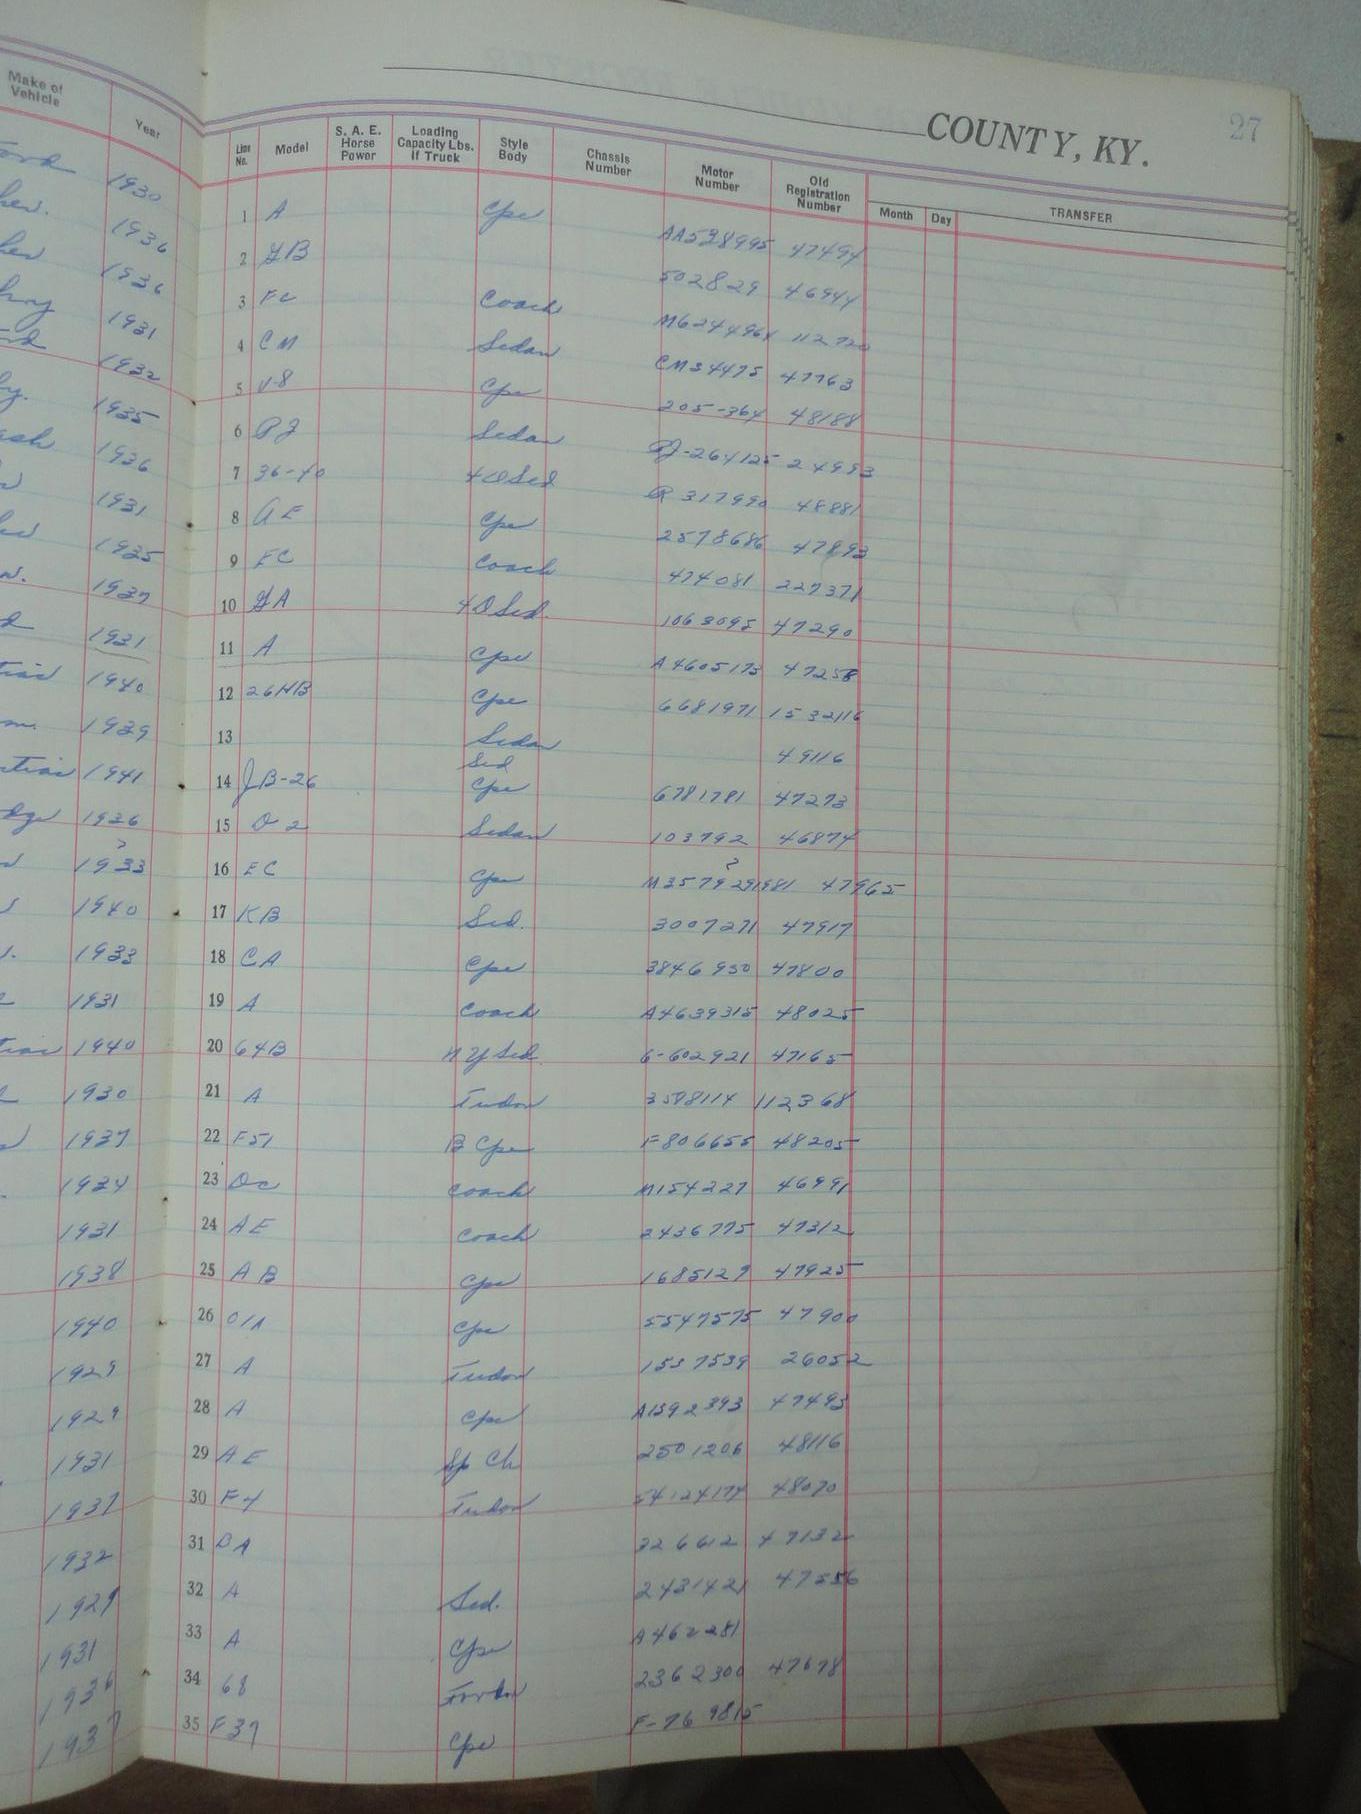 Make of Vehicle Year
1930
1936
1936
1931
1932
1935
1936
1931
1935
1937
1931
1940
1939
1941
1936
?
1933
1940
1933
1931
1940
1930
1937
1934
1931
1938
1940
1929
1929
1931
1937
1932
1929
1931
1936
1937
COUNTY, KY. 27
Line No. Model S. A. E. Horse Power Loading Capacity Lbs. If Truck Style Body Chassis Number Motor Number Old Registration Number Month Day TRANSFER
1 A Cpe AA5238995 47494
2 GB 502829 46944
3 FC Coach M6244964 112720
4 CM Sedan CM34475 47763
5 V-8 Cpe 205-364 48188
6 PJ Sedan PJ-264125 24993
7 36-40 4 D Sed R 317990 48881
8 AE Cpe 2578686 47893
9 EC Coach 474081 227371
10 GA 4 D Sed. 1063095 47290
11 A Cpe A4605173 47258
12 26HB Cpe 6681971 1532116
13 Sedan 49116
14 JB-26 Sed Cpe 6781781 47273
15 D 2 Sedan 103792 46874
?
16 EC Cpe 47965
17 KB Sed. 3007271 47917
18 CA Cpe 3846950 47800
19 A Coach A4639315 48025
20 64B N Y Sed 6-602921 47165
21 A Tudor 3598114 112368
22 F51 B Cpe F806655 48205
23 DC Coach M154227 46991
24 AE Coach 2436775 47312
25 AB Cpe 1685129 47925
26 01A Cpe 5547575 47900
27 A Tudor 1537539 26052
28 A Cpe A1592393 47493
29 AE Sp Ch 2501206 48116
30 F4 Tudor 54124174 48070
31 BA 326612 47132
32 A Sed. 2431421 47556
33 A Cpe A462281
34 68 Fordor 2362300 47678
35 F37 Cpe F-769815